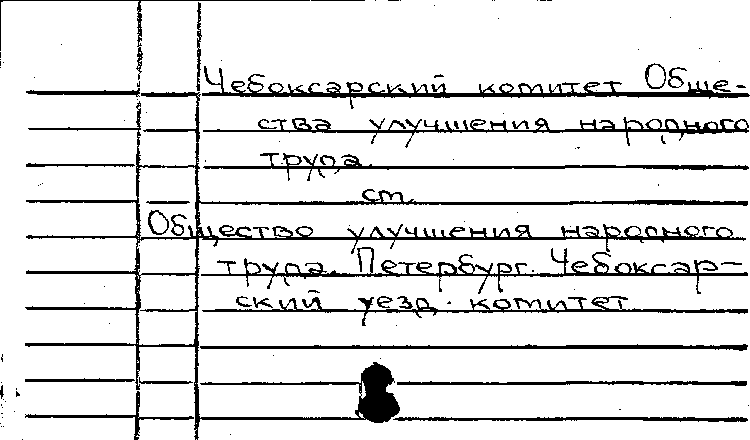 Чебоксарский комитет Обще-
ства улучшения народного
труда.
см.
Общество улучшения народного
труда. Петербург. Чебоксар-
ский уезд. комитет